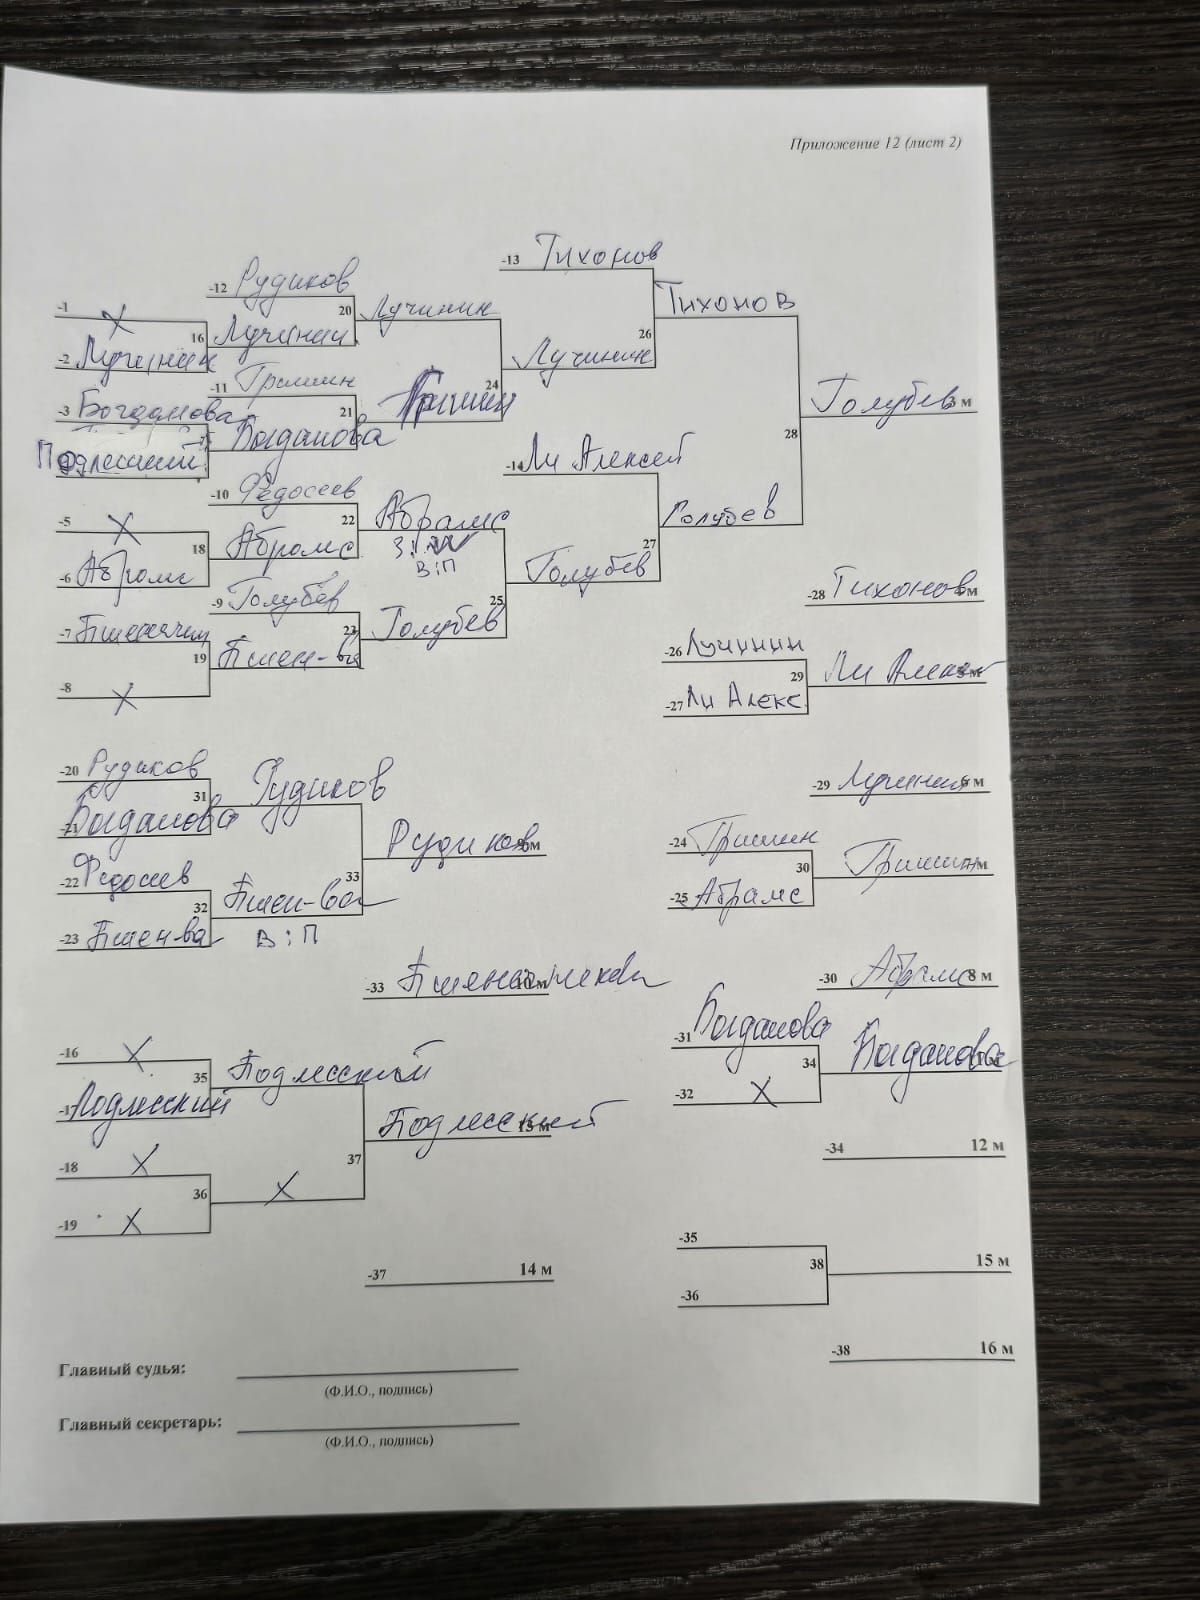 Приложение 12 (лист 2)
-13 Тихонов
-12 Рудиков
-1 X
20 Лучинин
Тихонов
16 Лучинин
26
-2 Лучинин
Лучинин
-11 Гришин
24
-3 Богданова
21 Гришин
Голубев 3 м
Богданова
28
Подлесский
-14 Ли Алексей
-10 Федосеев
-5 X
22 Абрамс
Голубев
18 Абрамс
27
В:П
-6 Абрамс
Голубев
-9 Голубев
25
-28 Тихонов 4 м
-7 Пшеничн
23 Голубев
19 Пшен-ва
-26 Лучинин
-8 X
29 Ли Алекс 5 м
-27 Ли Алекс
-20 Рудиков
31 Рудиков
-29 Лучинин 6 м
-21 Богданова
Рудиков 9 м
-24 Гришин
30 Гришин 7 м
-22 Федосеев
33
-25 Абрамс
32 Пшен-ва
-23 Пшен-ва
В:П
-33 10 м
-30 Абрамс 8 м
-31 Богданова
-16 X
34 Богданова 11 м
35 Подлесский
-32 X
Подлесский
Подлесский 13 м
-34 12 м
-18 X
37
36 X
-19 X
-35
-37 14 м
38 15 м
-36
-38 16 м
Главный судья:
(Ф.И.О., подпись)
Главный секретарь:
(Ф.И.О., подпись)